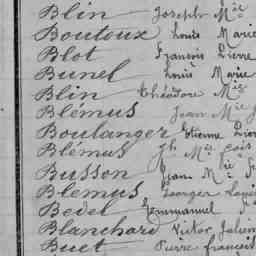 Blin Joseph Mie
Boutoux Louis Marie
Blot François Pierre
Bunel Louis Marie
Blin Théodore Mie
Blémus Jean Mie J
Boulanger Etienne Pier
Blémus Jh Mie Fois
Busson Jean Mie F
Blemus Georges Louis
Bedel Emmanuel
Blanchard Victor Julien
Buet Pierre françois